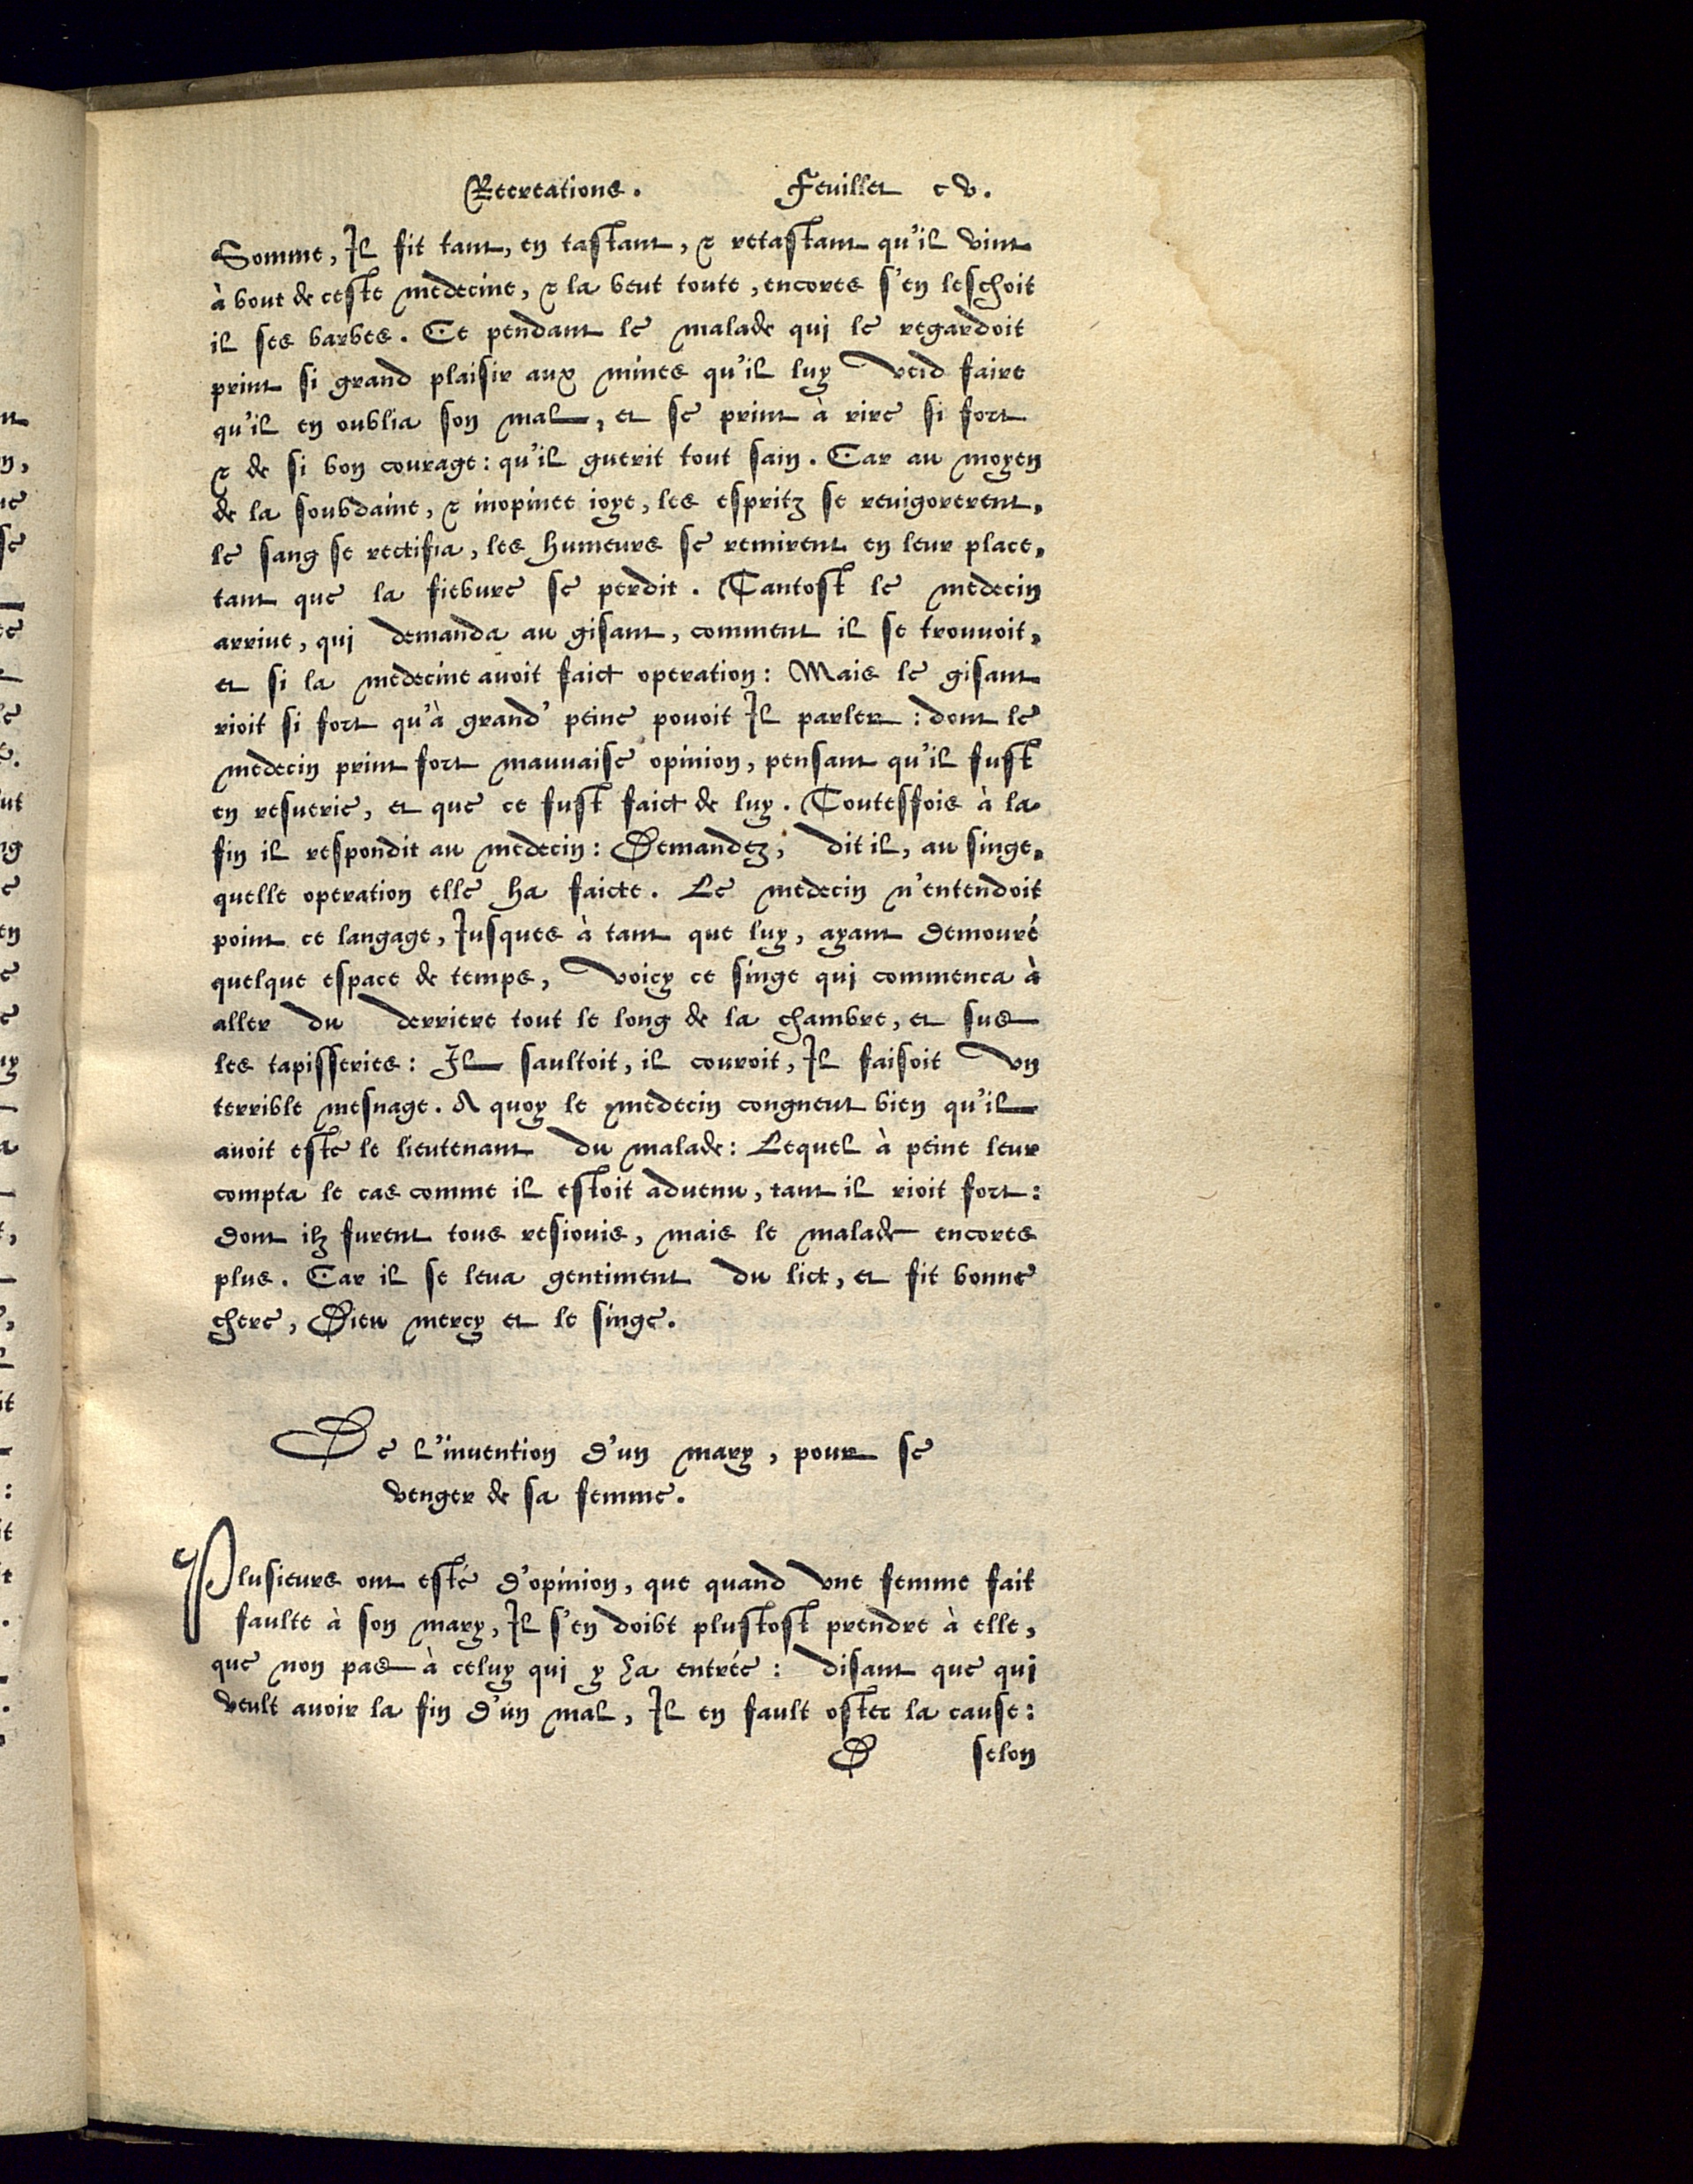 Recreations. Feuillet cv.
Somme, Il fit tant, en tastant, & retastant qu'il vint
à bout de ceste medecine, & la beut toute, encores s'en leschoit
il ses barbes. Ce pendant le malade qui le regardoit
print si grand plaisir aux mines qu'il luy veid faire
qu'il en oublia son mal, et se print à rire si fort
& de si bon courage: qu'il guerit tout sain. Car au moyen
de la soubdaine, & inopinee ioye, les espritz se reuigorerent,
le sang se rectifia, les humeurs se remirent en leur place,
tant que la fiebure se perdit. Tantost le medecin
arriue, qui demanda au gisant, comment il se trouuoit,
et si la medecine auoit faict operation: Mais le gisant
rioit si fort qu'à grand' peine pouoit Il parler: dont le
medecin print fort mauuaise opinion, pensant qu'il fust
en resuerie, et que ce fust faict de luy. Toutesfois à la
fin il respondit au medecin: Demandez, dit il, au singe,
quelle operation elle ha faicte. Le medecin n'entendoit
point ce langage, Iusques à tant que luy, ayant demouré
quelque espace de temps, voicy ce singe qui commenca à
aller du derriere tout le long de la chambre, et sus
les tapisseries: Il saultoit, il couroit, Il faisoit vn
terrible mesnage. A quoy le medecin congneut bien qu'il
auoit este le lieutenant du malade: Lequel à peine leur
compta le cas comme il estoit aduenu, tant il rioit fort:
dont ilz furent tous resiouis, mais le malade encores
plus. Car il se leua gentiment du lict, et fit bonne
chere, Dieu mercy et le singe.
De l'inuention d'un mary, pour se
venger de sa femme.
Plusieurs ont esté d'opinion, que quand vne femme fait
faulte à son mary, Il s'en doibt plustost prendre à elle,
que non pas à celuy qui y ha entrée: disant que qui
veult auoir la fin d'un mal, Il en fault oster la cause:
D selon
nt
n,
ue
se
ut
ng
en